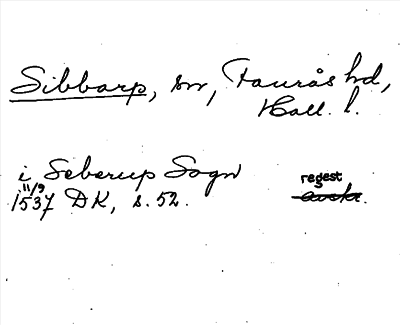 Sibbarp, sn, Faurås hd,
Hall. l.
i Seberup Sogn
regest
11/9
1537 DK, s. 52. avskr.